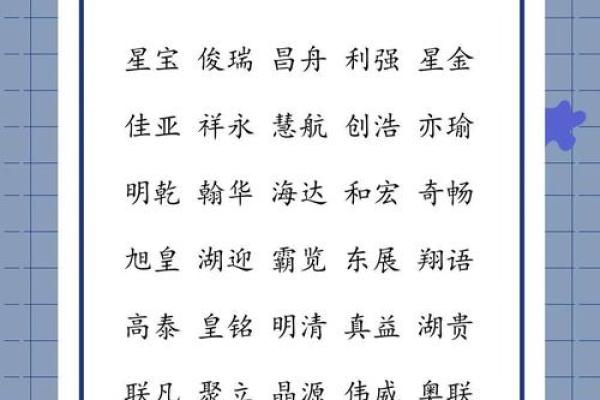 星宝 俊瑞 昌舟 利强 星金
佳亚 祥永 慧航 创浩 亦瑜
明乾 翰华 海达 和宏 奇畅
旭皇 湖迎 霸览 东展 翔语
高泰 皇铭 明清 真益 湖贵
联凡 聚立 晶源 伟威 奥联